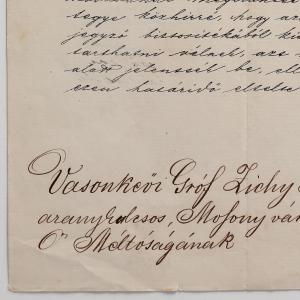 tegye közhirré, hogy az
jegyző biztositékából ki
tarthatni vélnek, azt
alatt jelenssék be, el
ezen határidő eltelte
Vasonkeöi Gróf Zichy
aranykulcsos, Mosony vár
Ő Méltóságának